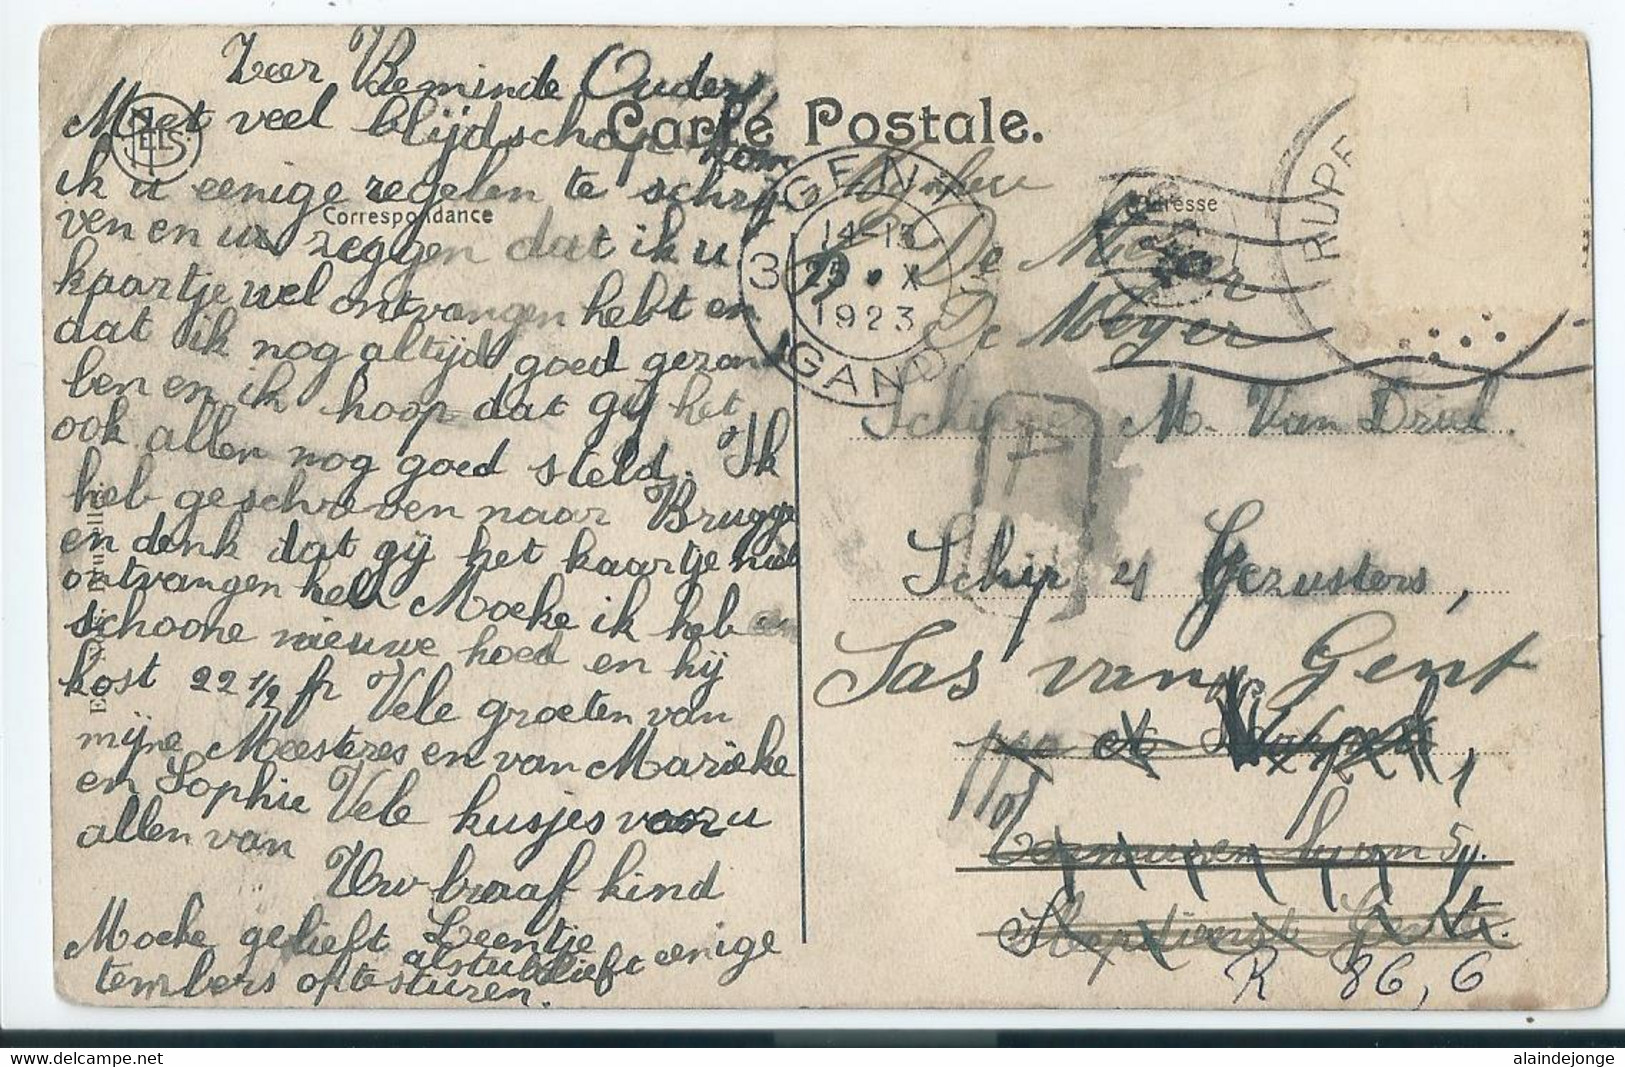 Zeer Beminde Ouders,
Met veel blijdschap kom
ik u eenige regelen te schrij
ven en u zeggen dat ik u
kaartje wel ontvangen hebt en
dat ik nog altijd goed gezond
ben en ik hoop dat gij het
ook allen nog goed steld. Ik
heb geschreven naar Brugge
en denk dat gij het kaartje
ontvangen heb Moeke ik heb een
schoone nieuwe hoed en hij
kost 22 1/2 fr Vele groeten van
mijne Meesteres en van Marieke
en Sophie Vele kusjes voor u
allen van
Uw braaf kind
Leentje
Moeke gelieft alstublieft eenige
tembers op te sturen.
NELS
Carte Postale.
Correspondance
Adresse
GENT
14-15
3
25 X
1923
GAND
RUPE
De Meyer
De Meyer
Schipper M. Van Driel.
T
Schip 4 Gezusters,
Sas van Gent
R 86,6
alaindejonge